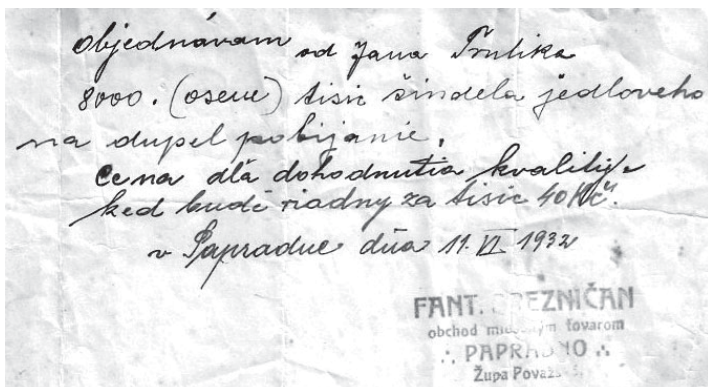 objednávam od Jana Trulika
8000. (oseme) tisic šindela jedloveho
na dupel pobijanie,
Cena dľa dohodnutia kvality,
ked budě riadny za tisic 40 Kč.
v Papradne dňa 11. VI 1932
FANT. BREZNIČAN
obchod miešaným tovarom
∴ PAPRADNO ∴
Župa Považs